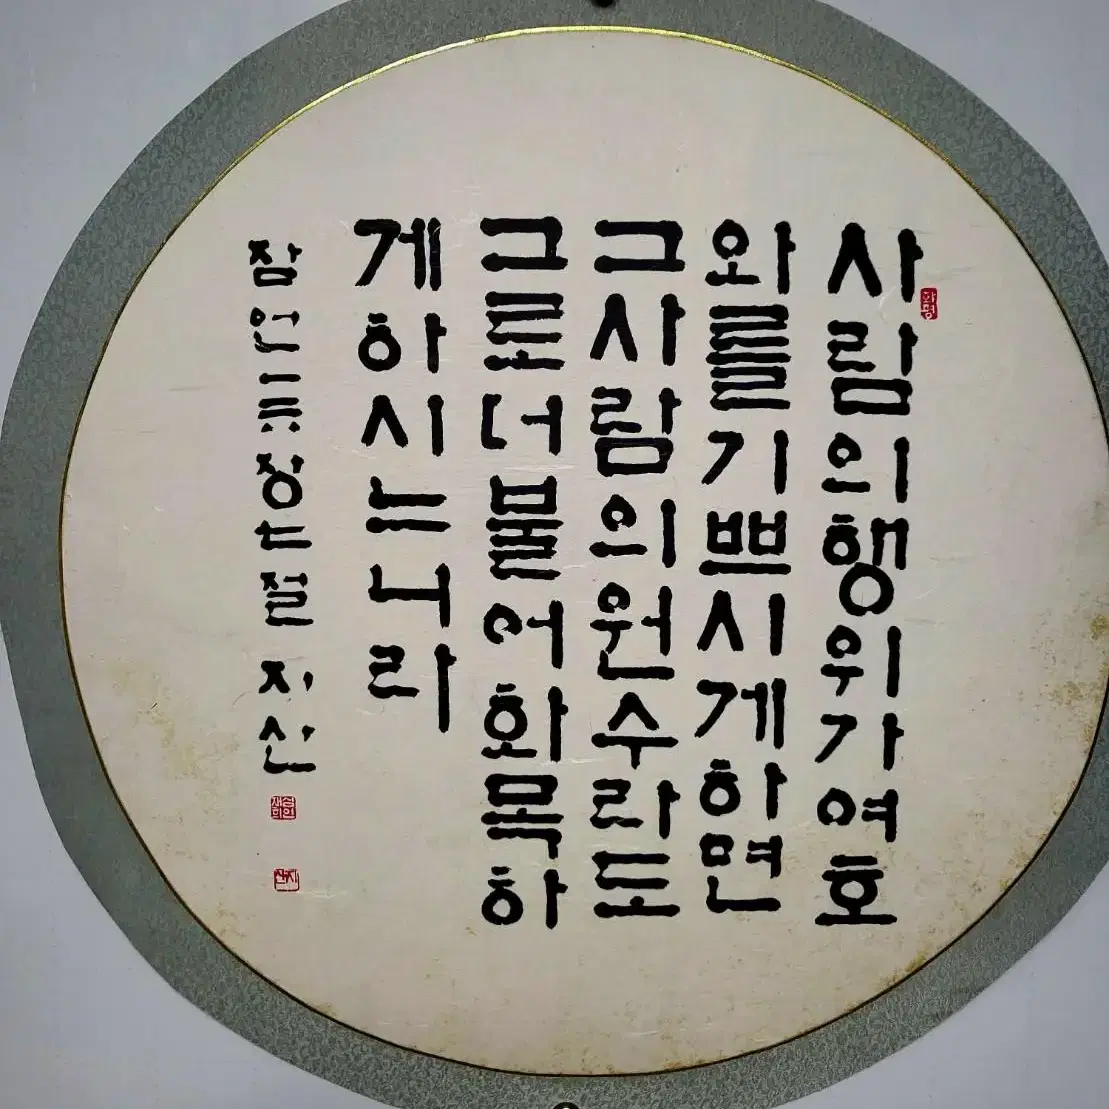 사람의행위가여호
와를기쁘시게하면
그사람의원수라도
그로더불어화목하
게하시는니라
잠언一六장七절 지산